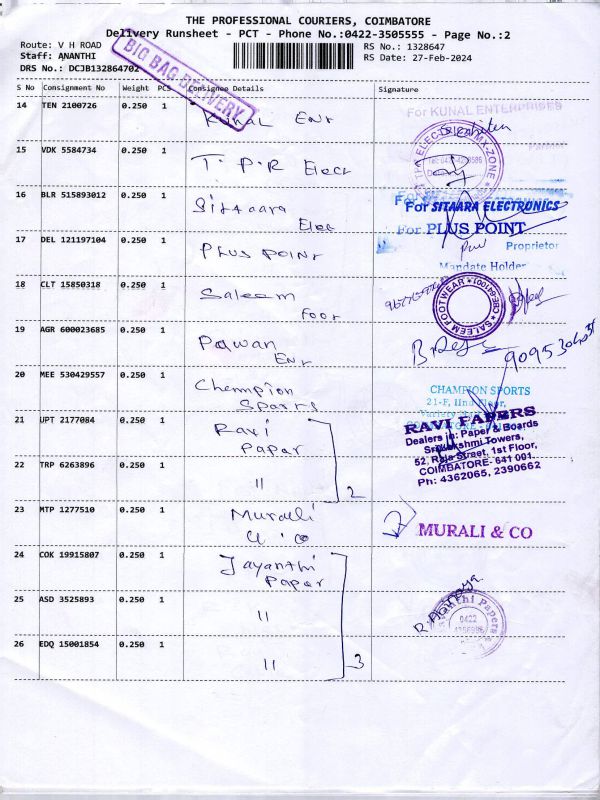 THE PROFESSIONAL COURIERS, COIMBATORE
Delivery Runsheet - PCT - Phone No.:0422-3505555 - Page No.:2
Route: V H ROAD
RS No.: 1328647
Staff: ANANTHI
RS Date: 27-Feb-2024
DRS No.: DCJB132864702
BIG BAG DELIVERY
S No Consignment No Weight PCS Consignee Details Signature
14 TEN 2100726 0.250 1 Kunal Ent
For KUNAL ENTERPRISES
15 VDK 5584734 0.250 1 T.P.R Elect
16 BLR 515893012 0.250 1 Sittaara Elec
For SITAARA ELECTRONICS
17 DEL 121197104 0.250 1 Plus Point
For PLUS POINT
Proprietor
Mandate Holder
18 CLT 15850318 0.250 1 Saleem Foor
SALEEM FOOTWEAR * CBE-641001 *
19 AGR 600023685 0.250 1 Pawan Ent
20 MEE 530429557 0.250 1 Chempion Sports
CHAMPION SPORTS
21-F, IInd Floor,
21 UPT 2177084 0.250 1 Ravi Papar
RAVI PAPERS
Dealers in: Paper & Boards
Sri Lakshmi Towers,
52, Raja Street, 1st Floor,
COIMBATORE- 641 001.
Ph: 4362065, 2390662
22 TRP 6263896 0.250 1 " 2
23 MTP 1277510 0.250 1 Murali & co
MURALI & CO
24 COK 19915807 0.250 1 Jayanthi Papar
25 ASD 3525893 0.250 1 "
R. Abinaya
0422
26 EDQ 15001854 0.250 1 " 3